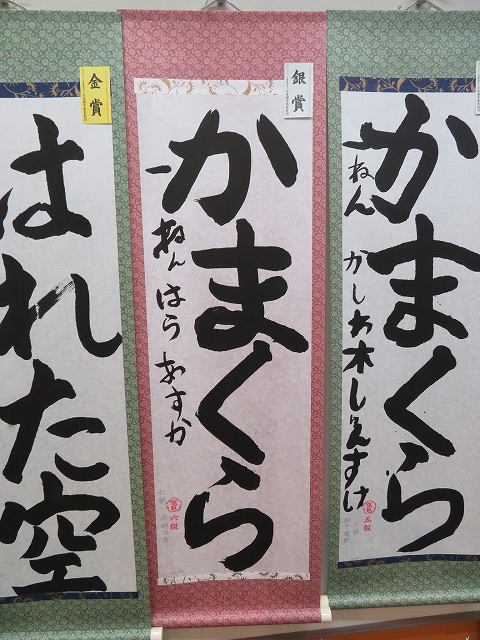 かまくら
一ねん
かしわ木しんすけ
五級
銀賞
かまくら
一ねん はら あすか
六級
金賞
はれた空